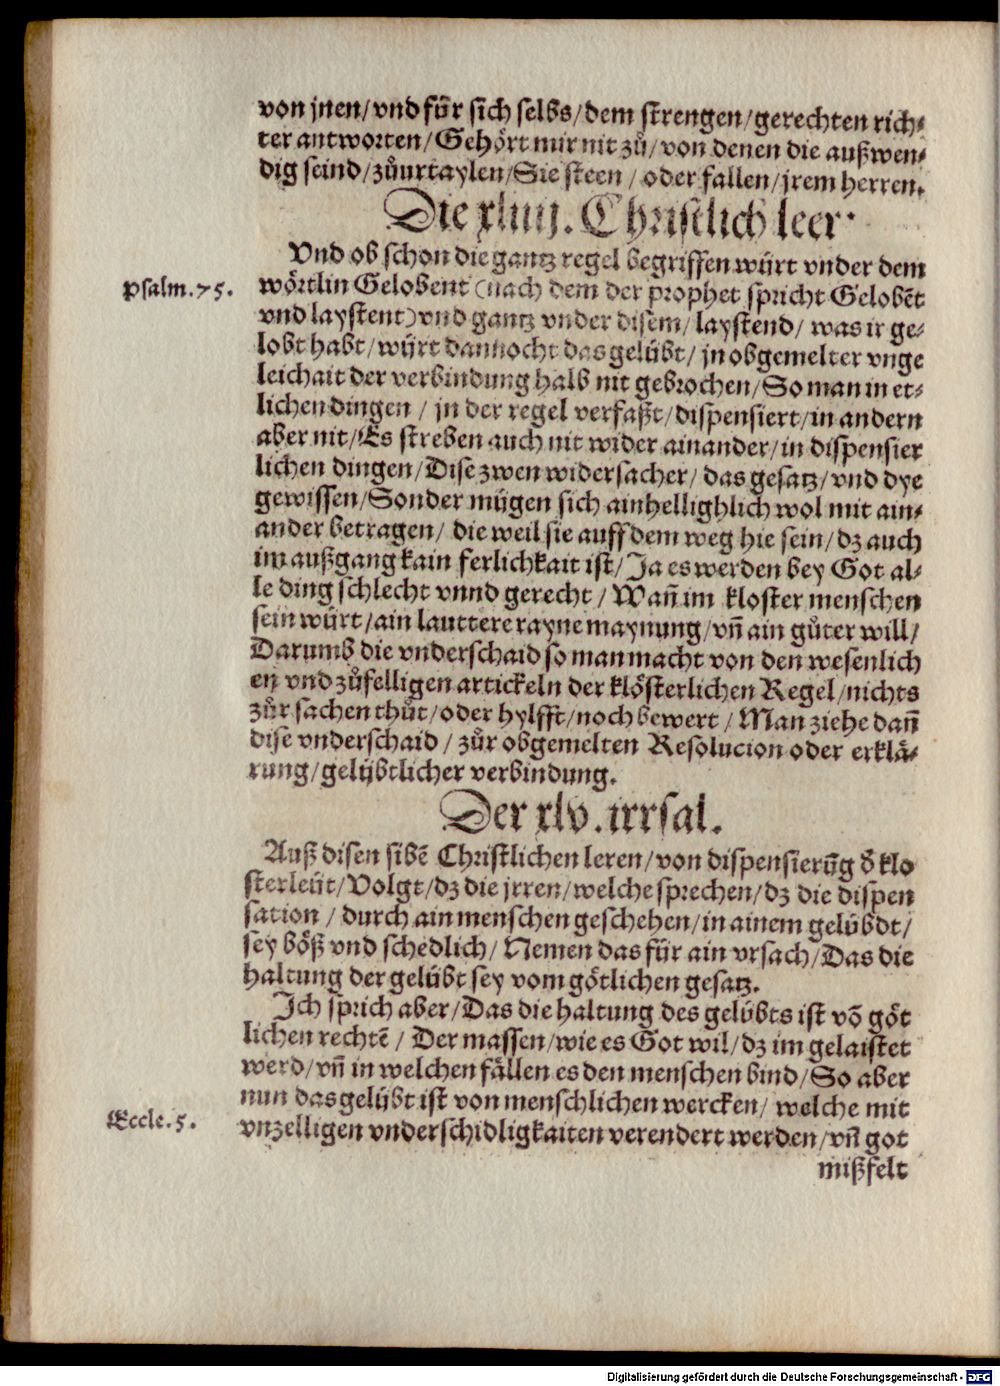 von jnen/vnd für sich selbs/dem strengen/gerechten rich⸗
ter antworten/Gehört mir nit zů/von denen die außwen⸗
dig seind/zůurtaylen/Sie steen/oder fallen/jrem herren.
Die xliiij. Christlich leer·
Vnd ob schon die gantz regel begriffen würt vnder dem
Psalm.75.
wörtlin Gelobent (nach dem der prophet spricht Gelobēt
vnd laystent) vnd gantz vnder disem/laystend/was ir ge⸗
lobt habt/würt dannocht das gelübt/jn obgemelter vnge
leichait der verbindung halb nit gebrochen/So man in et⸗
lichen dingen/jn der regel verfaßt/dispensiert/in andern
aber nit/Es streben auch nit wider ainander/in dispensier
lichen dingen/Dise zwen widersacher/das gesatz/vnd dye
gewissen/Sonder mügen sich ainhellighlich wol mit ain⸗
ander betragen/die weil sie auff dem weg hie sein/dz auch
im außgang kain ferlichkait ist/Ja es werden bey Got al⸗
le ding schlecht vnnd gerecht/Wañ im kloster menschen
sein würt/ain lauttere rayne maynung/vñ ain gůter will/
Darumb die vnderschaid so man macht von den wesenlich
en vnd zůfelligen artickeln der klösterlichen Regel/nichts
zůr sachen thůt/oder hylfft/noch bewert/Man ziehe dañ
dise vnderschaid/zůr obgemelten Resolucion oder erklä⸗
rung/gelübtlicher verbindung.
Der xlv. irrsal.
Auß disen sibē Christlichen leren/von dispensierūg d̄ klo
sterleüt/Volgt/dz die jrren/welche sprechen/dz die dispen
sation/durch ain menschen geschehen/in ainem gelübdt/
sey böß vnd schedlich/Nemen das für ain vrsach/Das die
haltung der gelübt sey vom götlichen gesatz.
Ich sprich aber/Das die haltung des gelübts ist vō göt
lichen rechtē/Der massen/wie es Got wil/dz im gelaistet
werd/vñ in welchen fällen es den menschen bind/So aber
nun das gelübt ist von menschlichen wercken/welche mit
Eccle.5.
vnzelligen vnderschidligkaiten verendert werden/vñ got
mißfelt
Digitalisierung gefördert durch die Deutsche Forschungsgemeinschaft - DFG